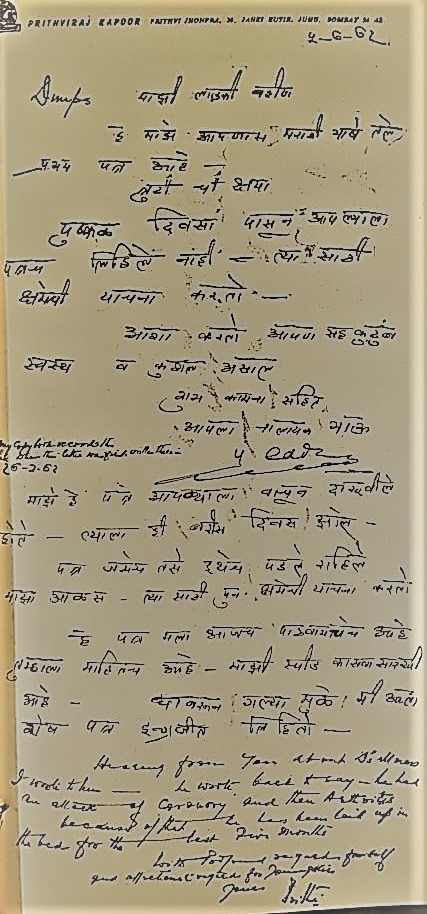 PRITHVIRAJ KAPOOR PRITHVI JHONPRA, JANKI KUTIR, JUHU, BOMBAY
62.
Dimps माझी लाडकी बहीण
हे माझे आपणास मराठी भाषे तले
प्रथम पत्र आहे
ची क्षमा
पुष्कळ दिवसां पासून आपल्याला
पत्रच लिहिले नाही — त्या साठी
क्षमेची याचना करतो —
आशा करतो आपण सह कुटुंब
स्वस्थ व कुशल असाल
कामना सहित
आपला नालायक भाऊ
my Copy book records the
माझे हे पत्र आपल्याला वाचून दाखवीले
होते — त्याला ही बरेच दिवस झाले —
पत्र जसेच तसे इथेच पडले राहिले
माझा आळस — त्या साठी पुन क्षमेची याचना करतो
हे पत्र मला आजच पाठवायचेच आहे
तुम्हाला माहितच आहे — माझी स्पीड कासवा सारखी
आहे — मुळे मी आता
शेष पत्र इंग्रजीत लिहितो —
Hearing from about D's illness
I wrote to him — he wrote back to say — he had
an attack of Coronory and then Arthritis
because of that he has been laid up in
the bed for the last five months
with Profound regards for self
and affectionate regards for
yours Prithvi